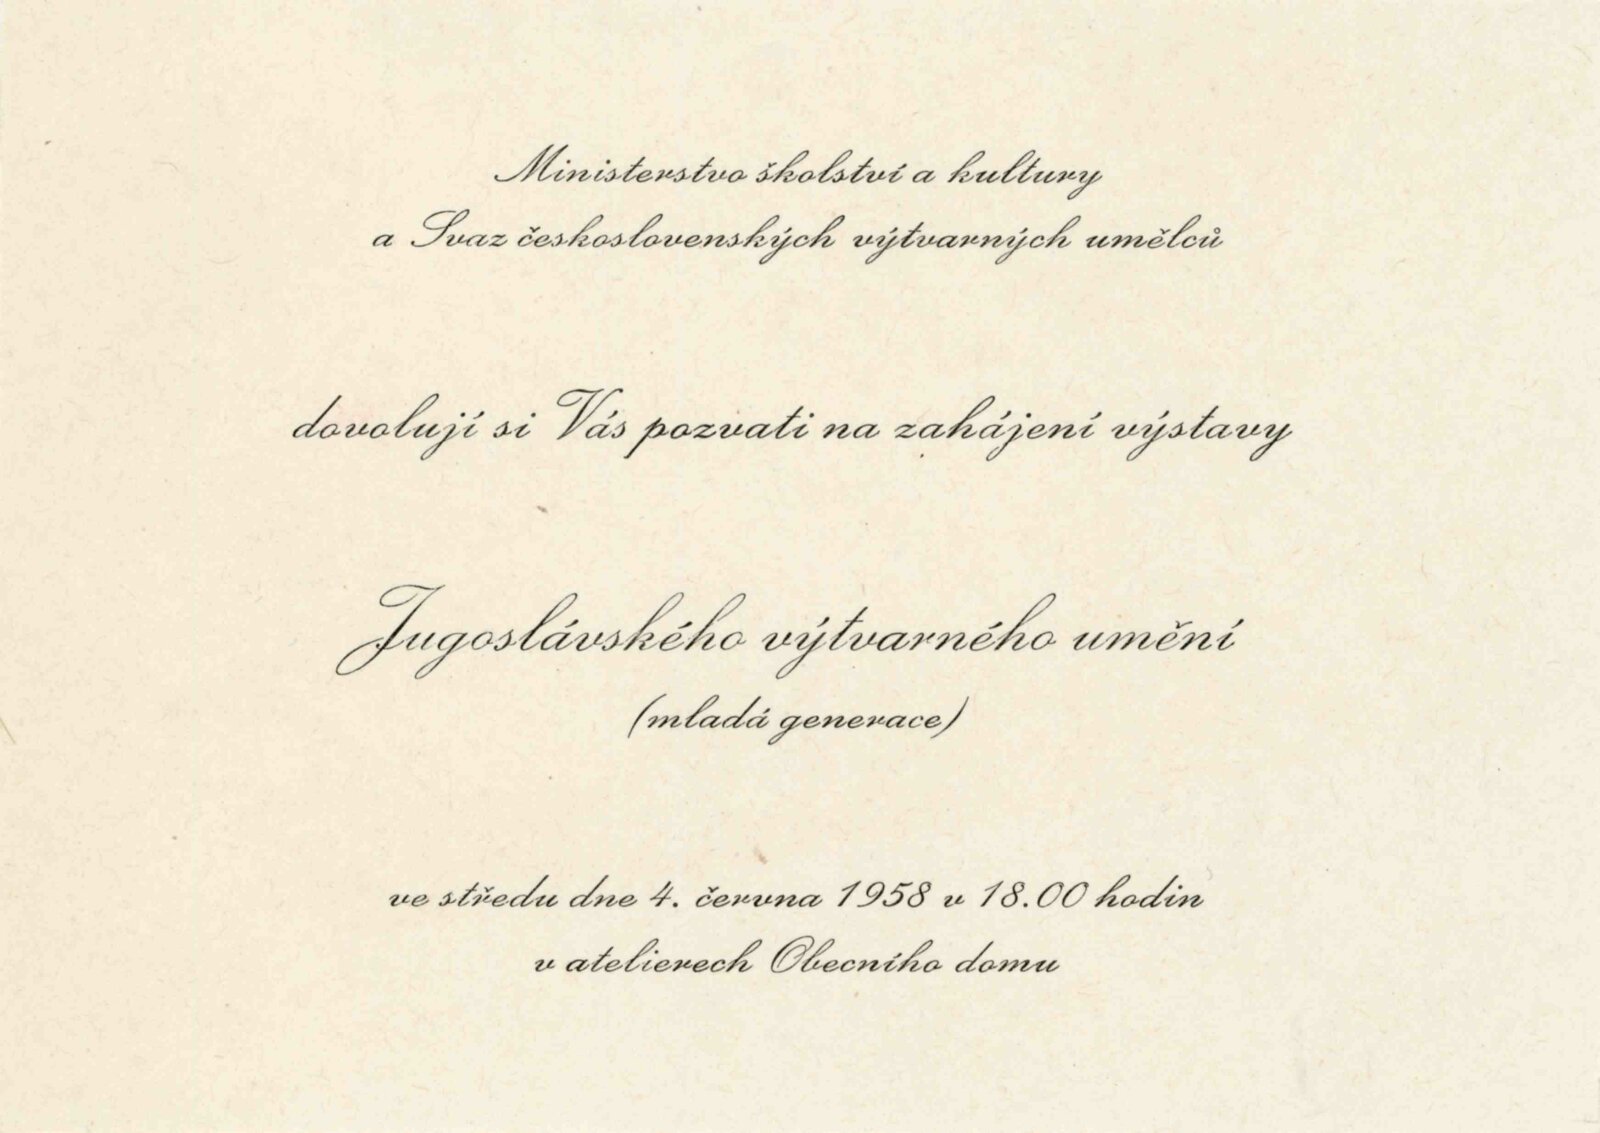 Ministerstvo školství a kultury
a Svaz československých výtvarných umělců
dovolují si Vás pozvati na zahájení výstavy
Jugoslávského výtvarného umění
(mladá generace)
ve středu dne 4. června 1958 v 18.00 hodin
v atelierech Obecního domu